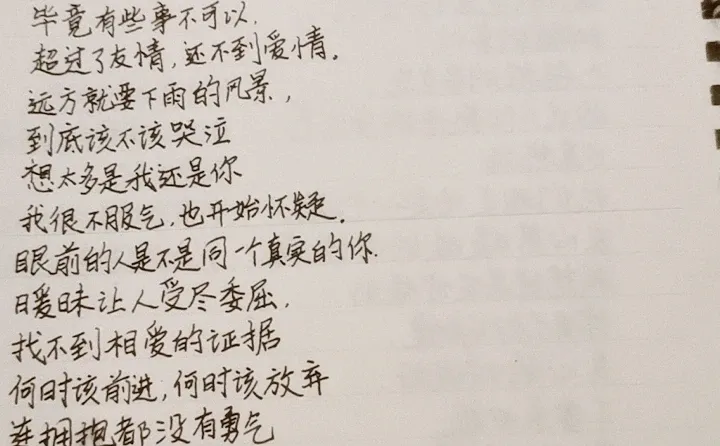 毕竟有些事不可以.
超过了友情,还不到爱情。
远方就要下雨的风景,
到底该不该哭泣
想太多是我还是你
我很不服气,也开始怀疑。
眼前的人是不是同一个真实的你.
暧昧让人受尽委屈.
找不到相爱的证据
何时该前进,何时该放弃
连拥抱都没有勇气